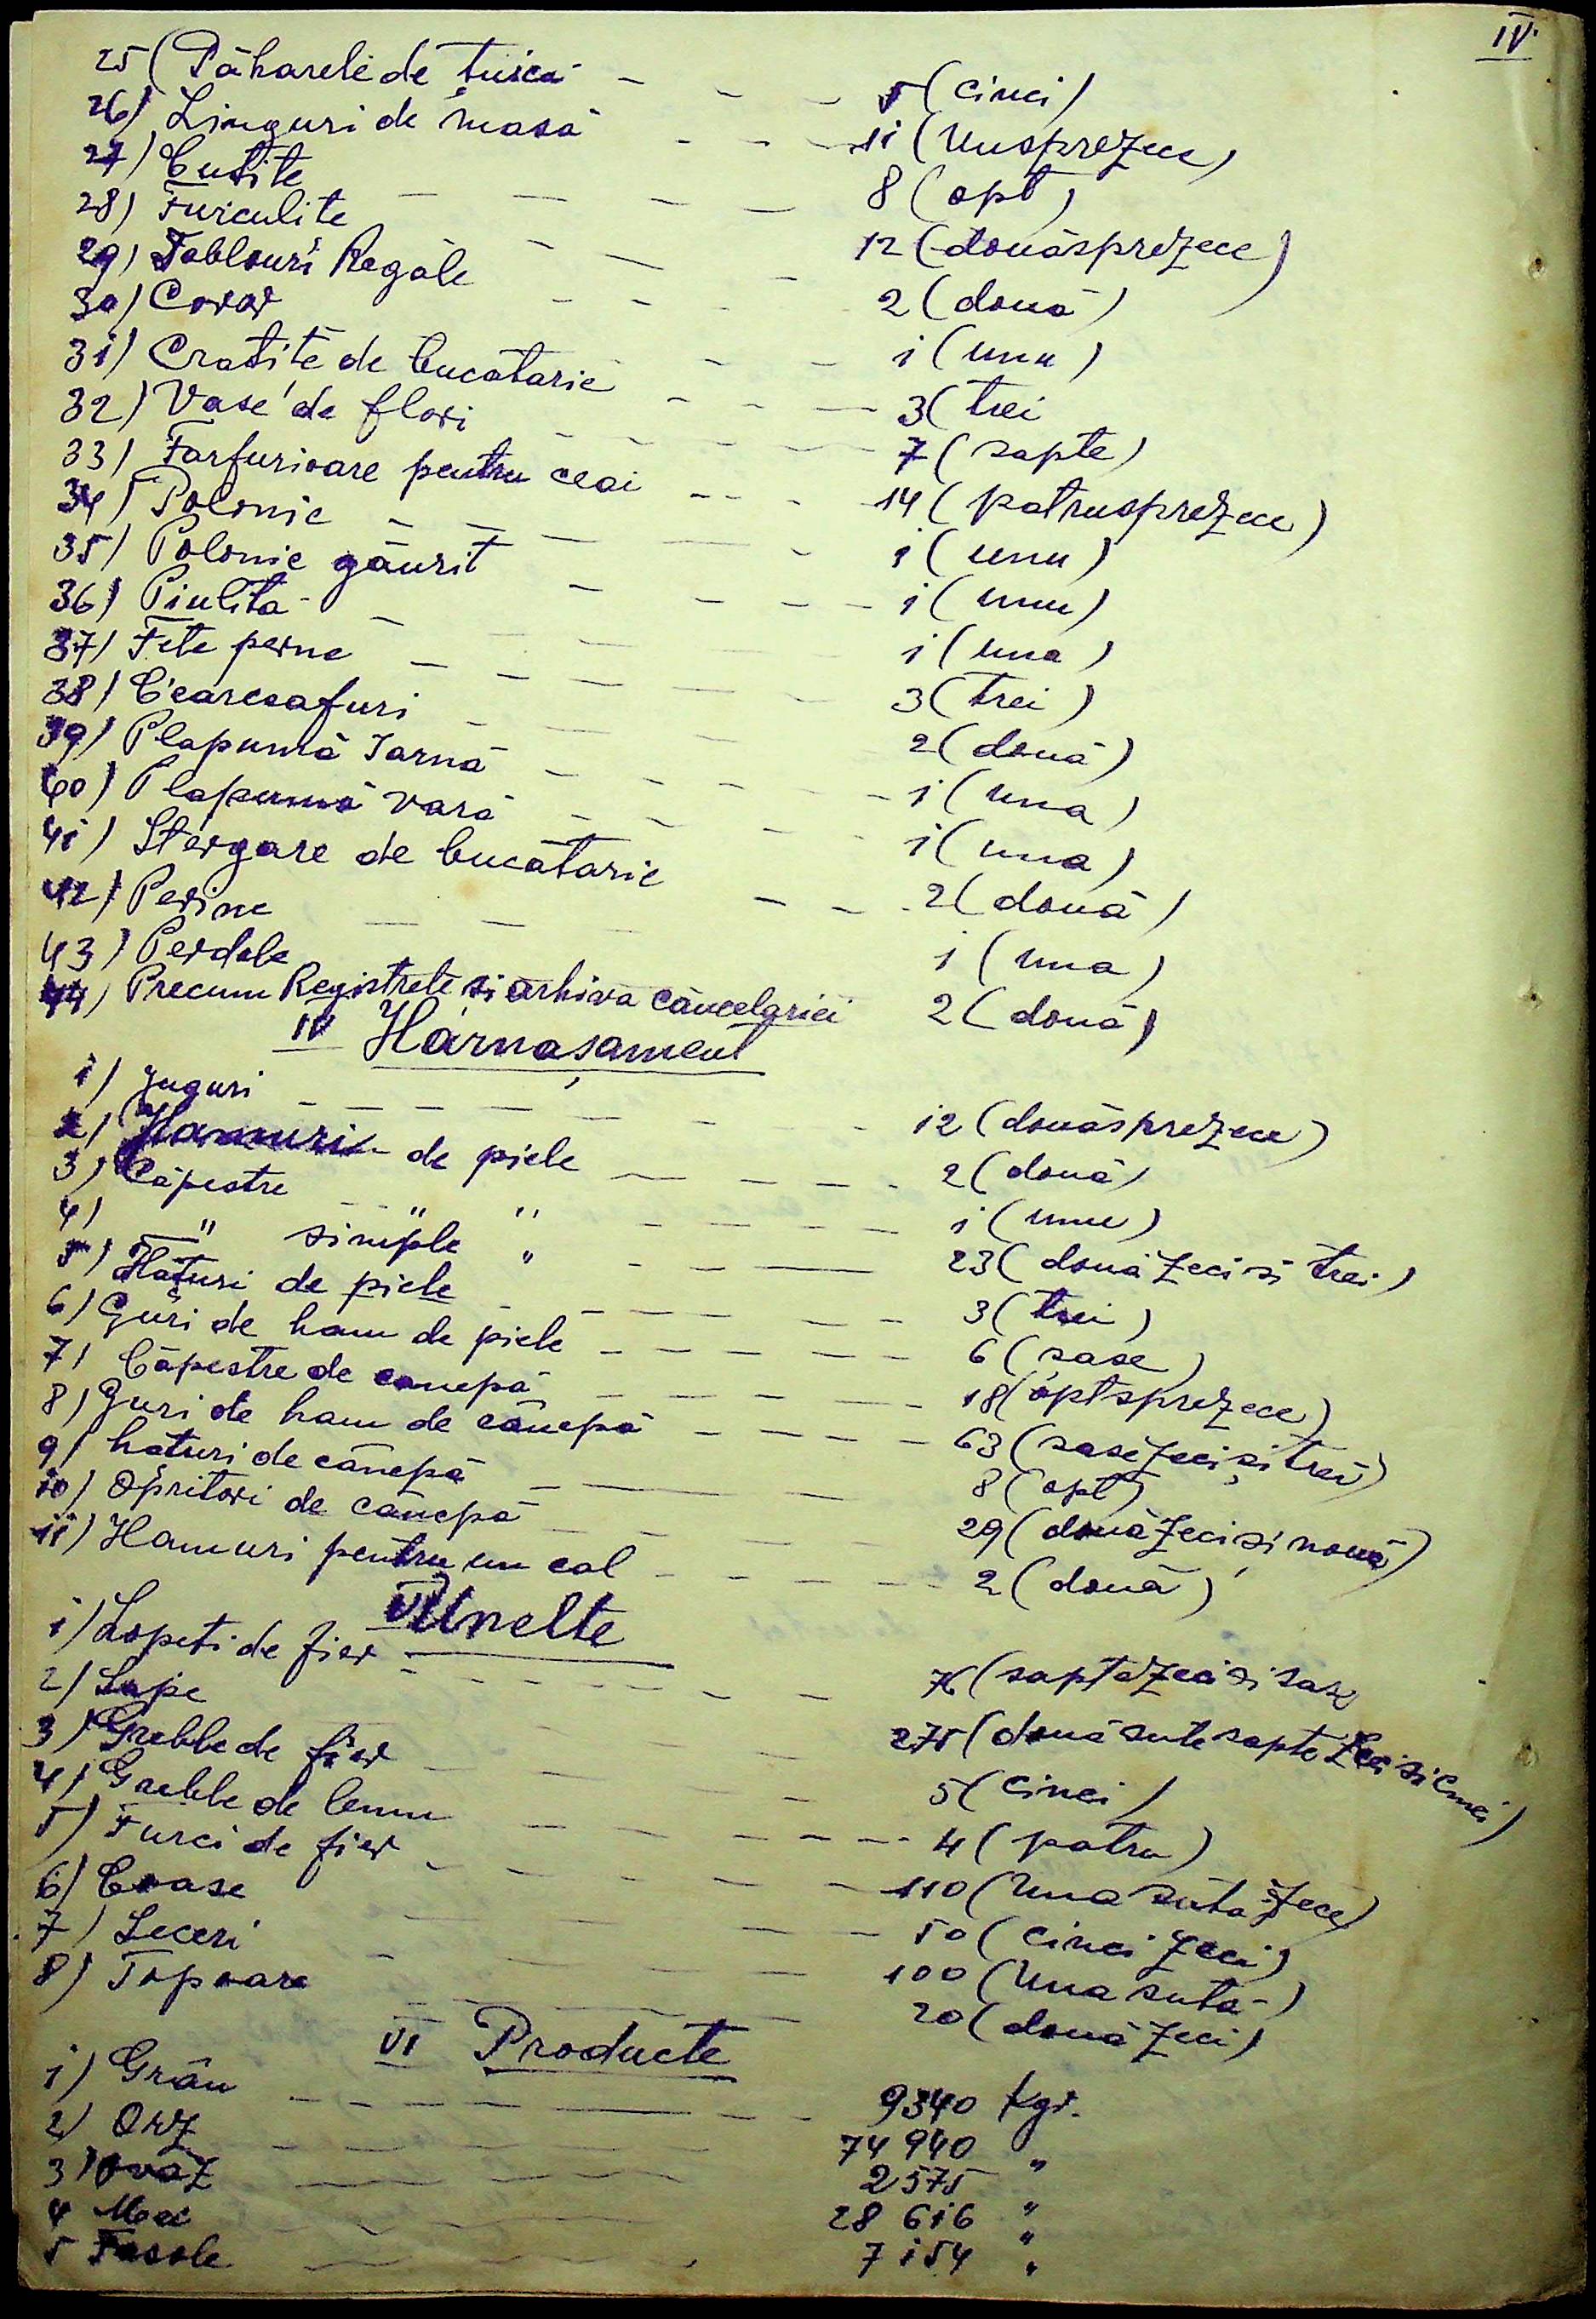 IV.
25) Păharele de țuică 5 (cinci)
26) Linguri de masă 11 (unsprezece)
27) Cuțite 8 (opt)
28) Furculite 12 (douăsprezece)
29) Tablouri Regale 2 (două)
30) Covor 1 (unu)
31) Cratițe de bucătarie 3 (trei
32) Vase de flori 7 (sapte)
33) Farfurioare pentru ceai 14 (patrusprezece)
34) Polonic 1 (unu)
35) Polonic găurit 1 (unu)
36) Piulita 1 (una)
37) Fete perne 3 (trei)
38) Cearceafuri 2 (două)
39) Plapumă Iarnă 1 (una)
40) Plapumă vară 1 (una)
41) Stergare de bucătarie 2 (două)
42) Perine 1 (una)
43) Perdele 2 (două)
44) Precum Registrele si arhiva cancelariei
IV Hărnașament
1) Juguri 12 (douăsprezece)
2) Hamuri de piele 2 (două)
3) Căpestre " " 1 (unu)
4) " simple " 23 (două zeci si trei)
5) Hățuri de piele 3 (trei)
6) Guri de ham de piele 6 (șase)
7) Căpestre de canepă 18 (optsprezece)
8) Guri de ham de cănepă 63 (sase zeci și trei)
9) hături de cănepă 8 (opt)
10) Opritori de cănepă 29 (două zeci si nouă)
11) Hamuri pentru un cal 2 (două)
VI Unelte
1) Lopeti de fier 76 (saptezeci si sase
2) Sape 275 (două sute sapte zeci si cinci)
3) Greble de fier 5 (cinci)
4) Greble de lemn 4 (patru)
5) Furci de fier 110 (una sută zece)
6) Coase 50 (cinci zeci)
7) Seceri 100 (una sută)
8) Topoare 20 (două zeci)
VI Producte
1) Grâu 9340 kgr.
2) Orz 74 940 "
3) Ovăz 2575 "
4 Mei 28 616 "
5 Fasole 7 154 "